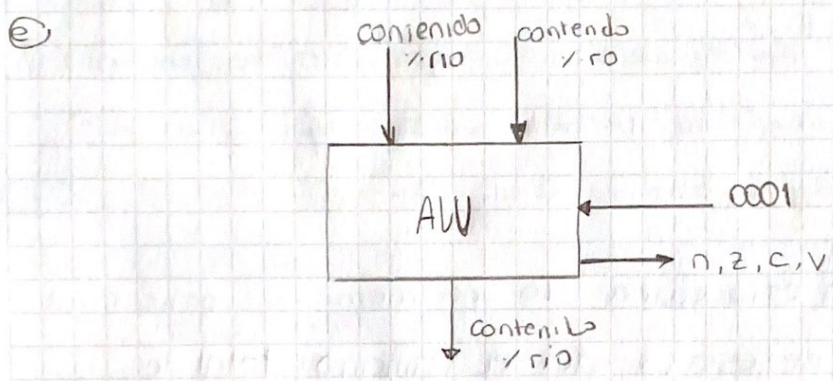 e
conienido contendo
%r10 %r0
ALU
0001
n, z, c, v
contenido
%r10